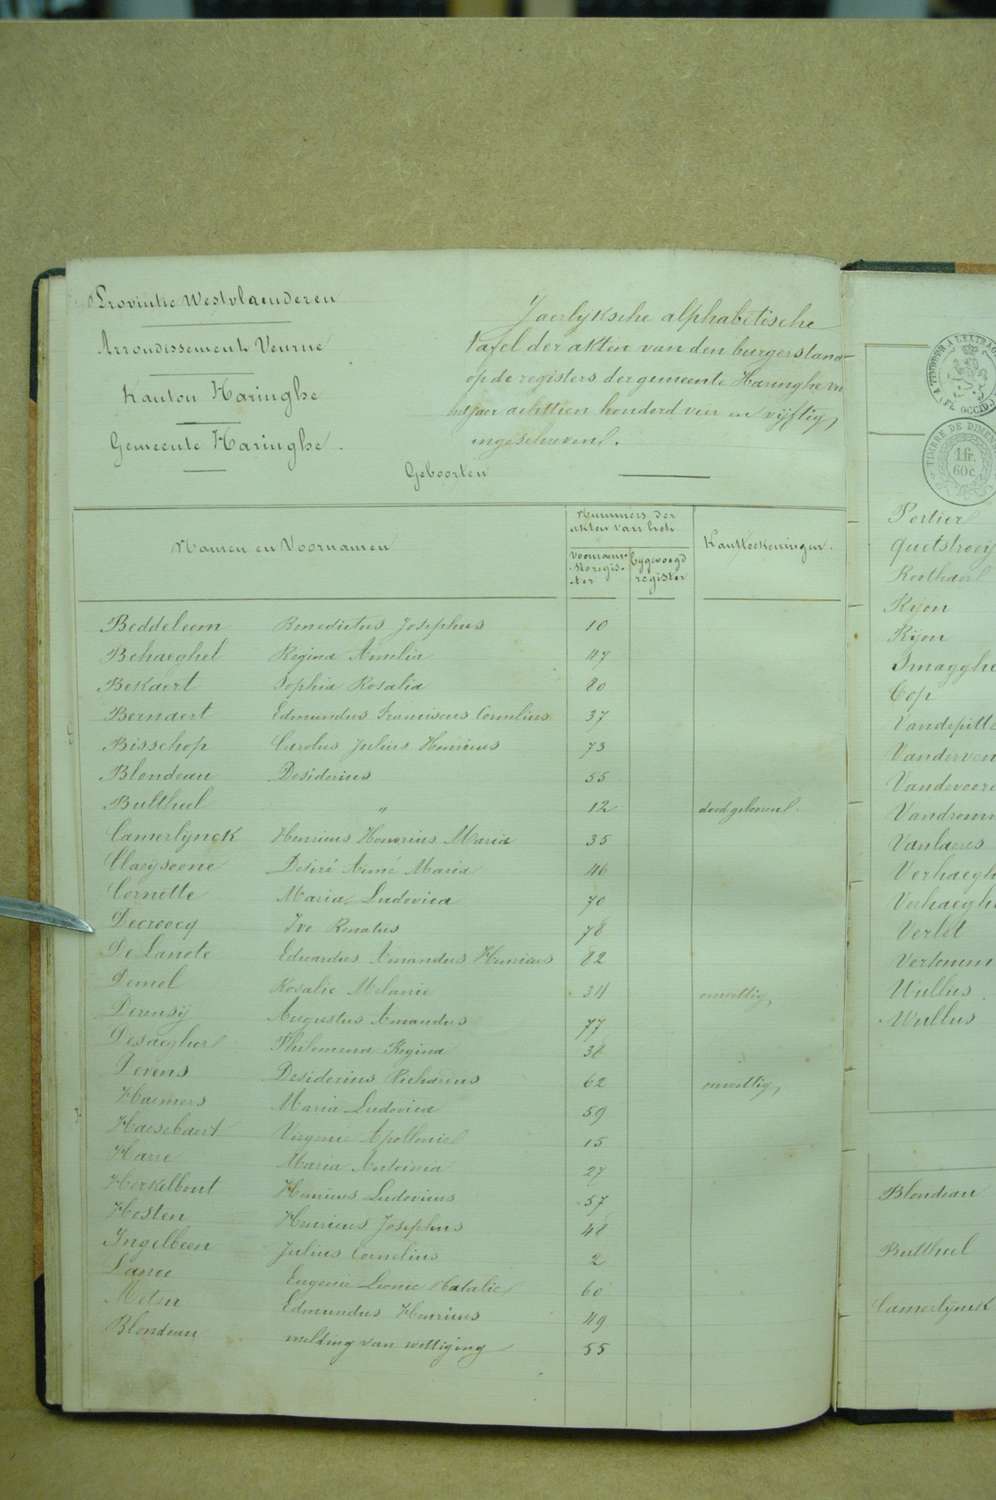 Provintie Westvlaenderen
Arrondissement Veurne
Kanton Haringhe
Gemeente Haringhe.
Jaerlyksche alphabetische
tafel der akten van den burgerstand
op de registers der gemeente Haringhe
het jaer achttien honderd vier en vijftig,
ingeschreven.
Geboorten
Namen en Voornamen
Nummers der akten van het
voornaemste register
bygevoegd register
Kantteekeningen.
Beddeleem Benedictus Josephus 10
Behaeghel Regina Amelia 47
Bekaert Sophia Rosalia 80
Bernaert Edmundus Franciscus Cornelius 37
Bisschop Carolus Julius Henricus 73
Blondeau Desiderius 55
Bultheel " 12 doodgeboren.
Camerlynck Henricus Honorius Maria 35
Claeysoone Desiré Aimé Maria 46
Cornette Maria Ludovica 70
Decroocq Ivo Renatus 78
De Lanote Eduardus Amandus Henricus 82
Demol Rosalie Melanie 34 onwettig,
Derensij Augustus Amandus 77
Desaegher Philomena Regina 38
Devens Desiderius Richardus 62 onwettig,
Haemers Maria Ludovica 59
Haesebaert Virginie Apollonie 15
Harre Maria Antoinia 27
Herkelbout Henricus Ludovicus 57
Hosten Henricus Josephus 48
Ingelbeen Julius Cornelius 2
Lanoe Eugenie Leonie Natalie 60
Metsu Edmundus Henricus 49
Blondeau melding van wettiging 55
TIMBRE DE DIMEN
1 fr.
60 c.
Portier
Quetstroeij
Roothaert
Ryon
Ryon
Smagghe
Top
Vandepitte
Vanderven
Vandevoorde
Vandromme
Vanlaeres
Verhaeghe
Verhaeghe
Verlet
Versomm
Wullus
Wullus
Blondeau
Bultheel
Camerlynck